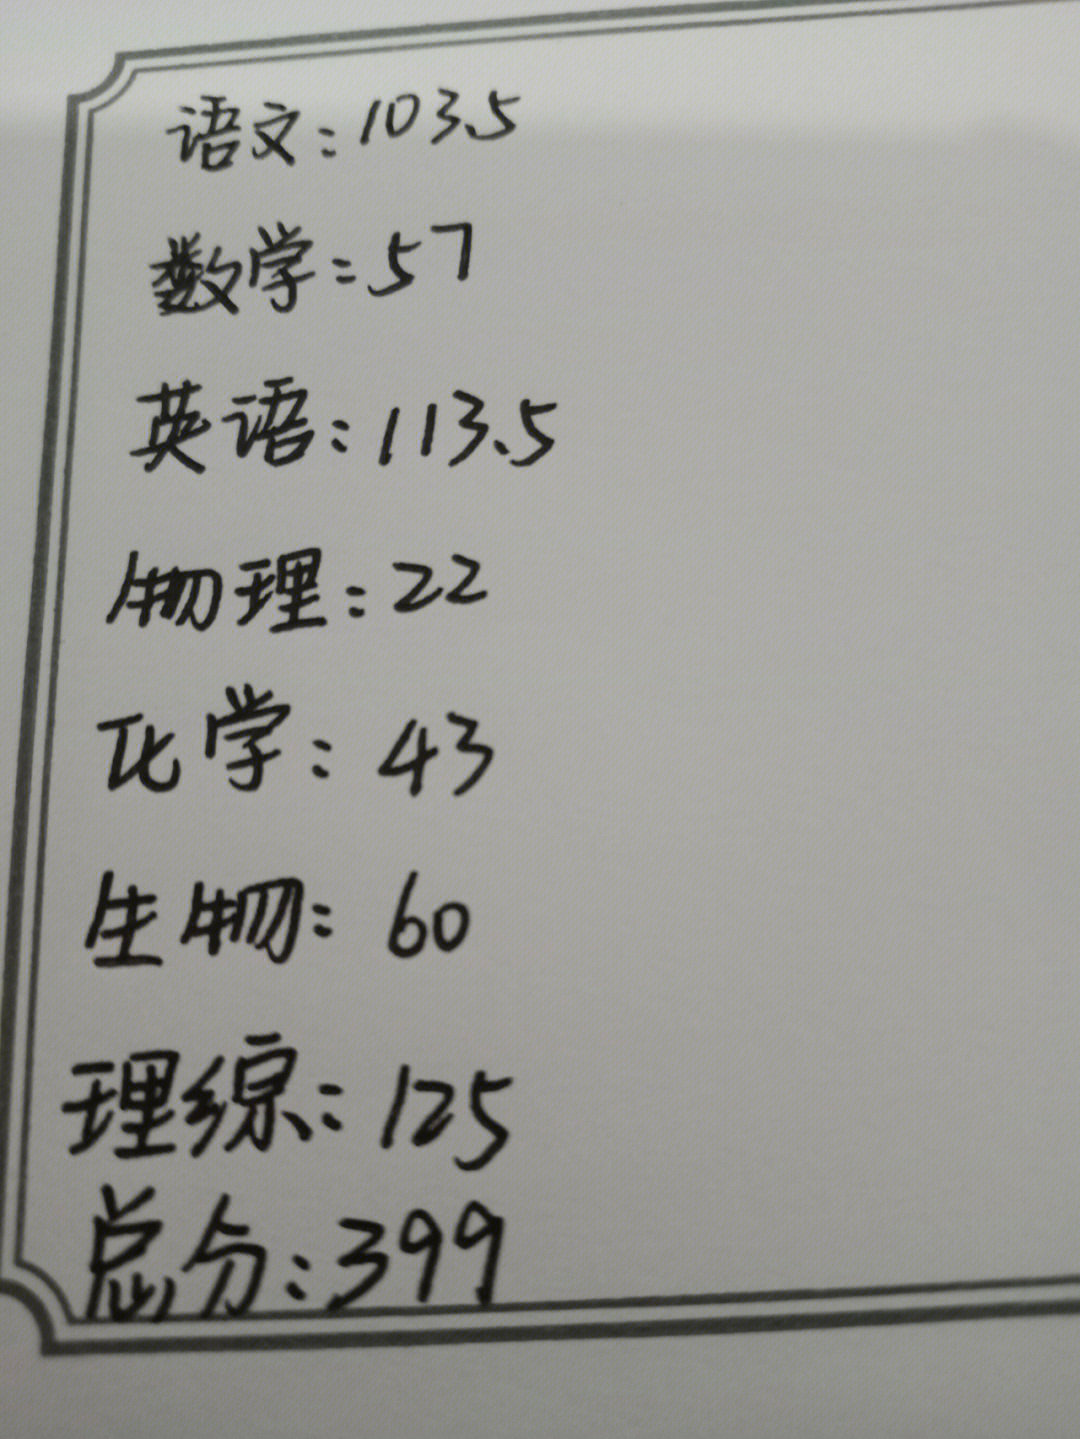 语文:103.5
数学:57
英语:113.5
物理:22
化学:43
生物:60
理综:125
总分:399